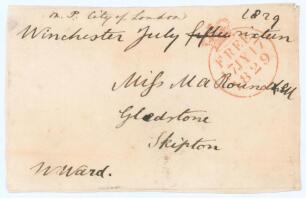 M.P. City of London
1829
Winchester July fifteen sixteen
FREE
17 JY 17
1829
Miss Ma Roundell
Gladstone
Skipton
W Ward.